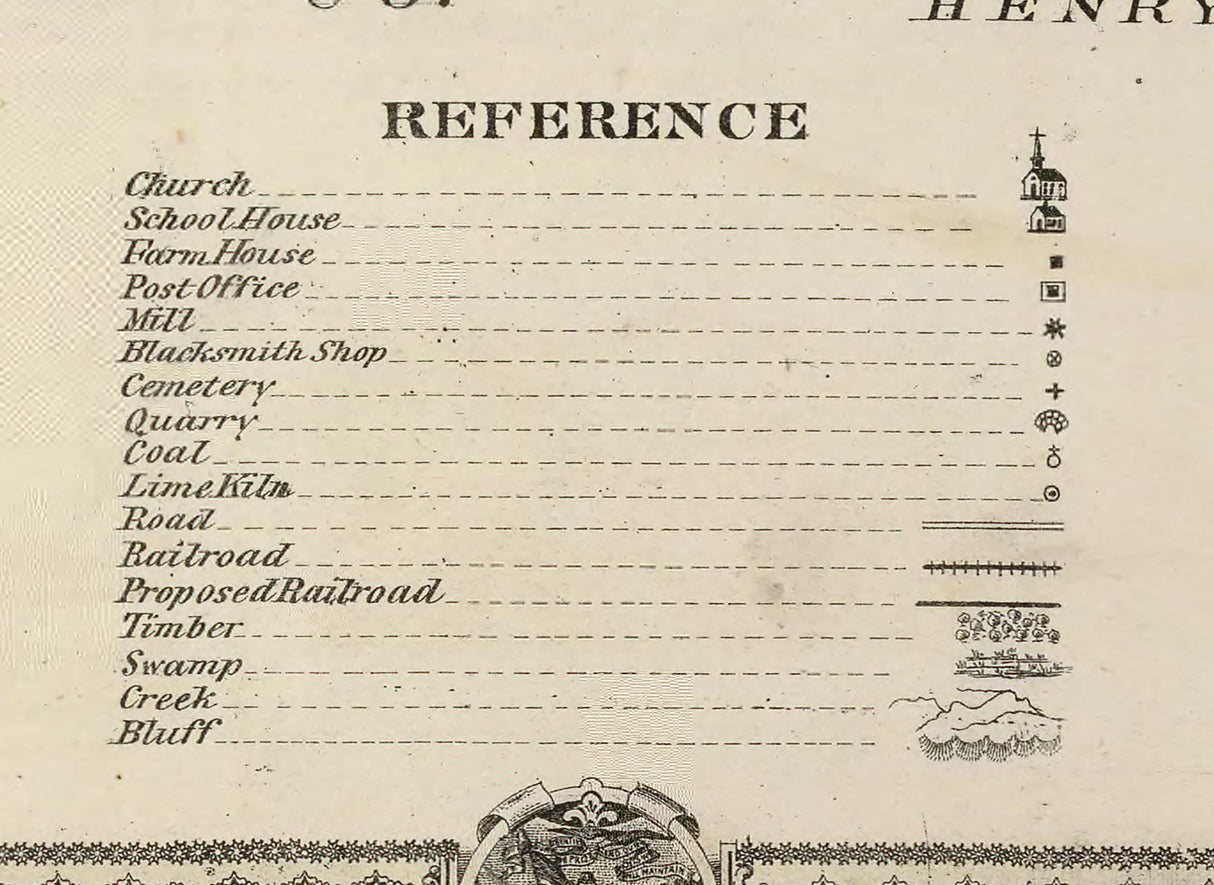 HENRY
REFERENCE
Church
School House
Farm House
Post Office
Mill
Blacksmith Shop
Cemetery
Quarry
Coal
Lime Kiln
Road
Railroad
Proposed Railroad
Timber
Swamp
Creek
Bluff
MAINTAIN